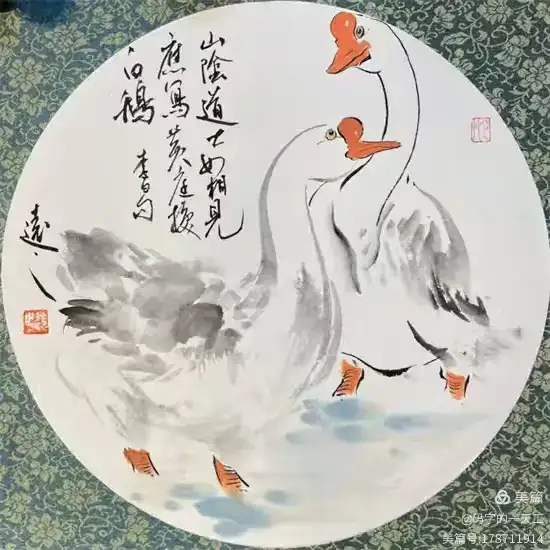 山陰道士如相見
應寫黄庭換
白鵝
李白句
遠
美篇
@码字的一天工
美篇号:178711914